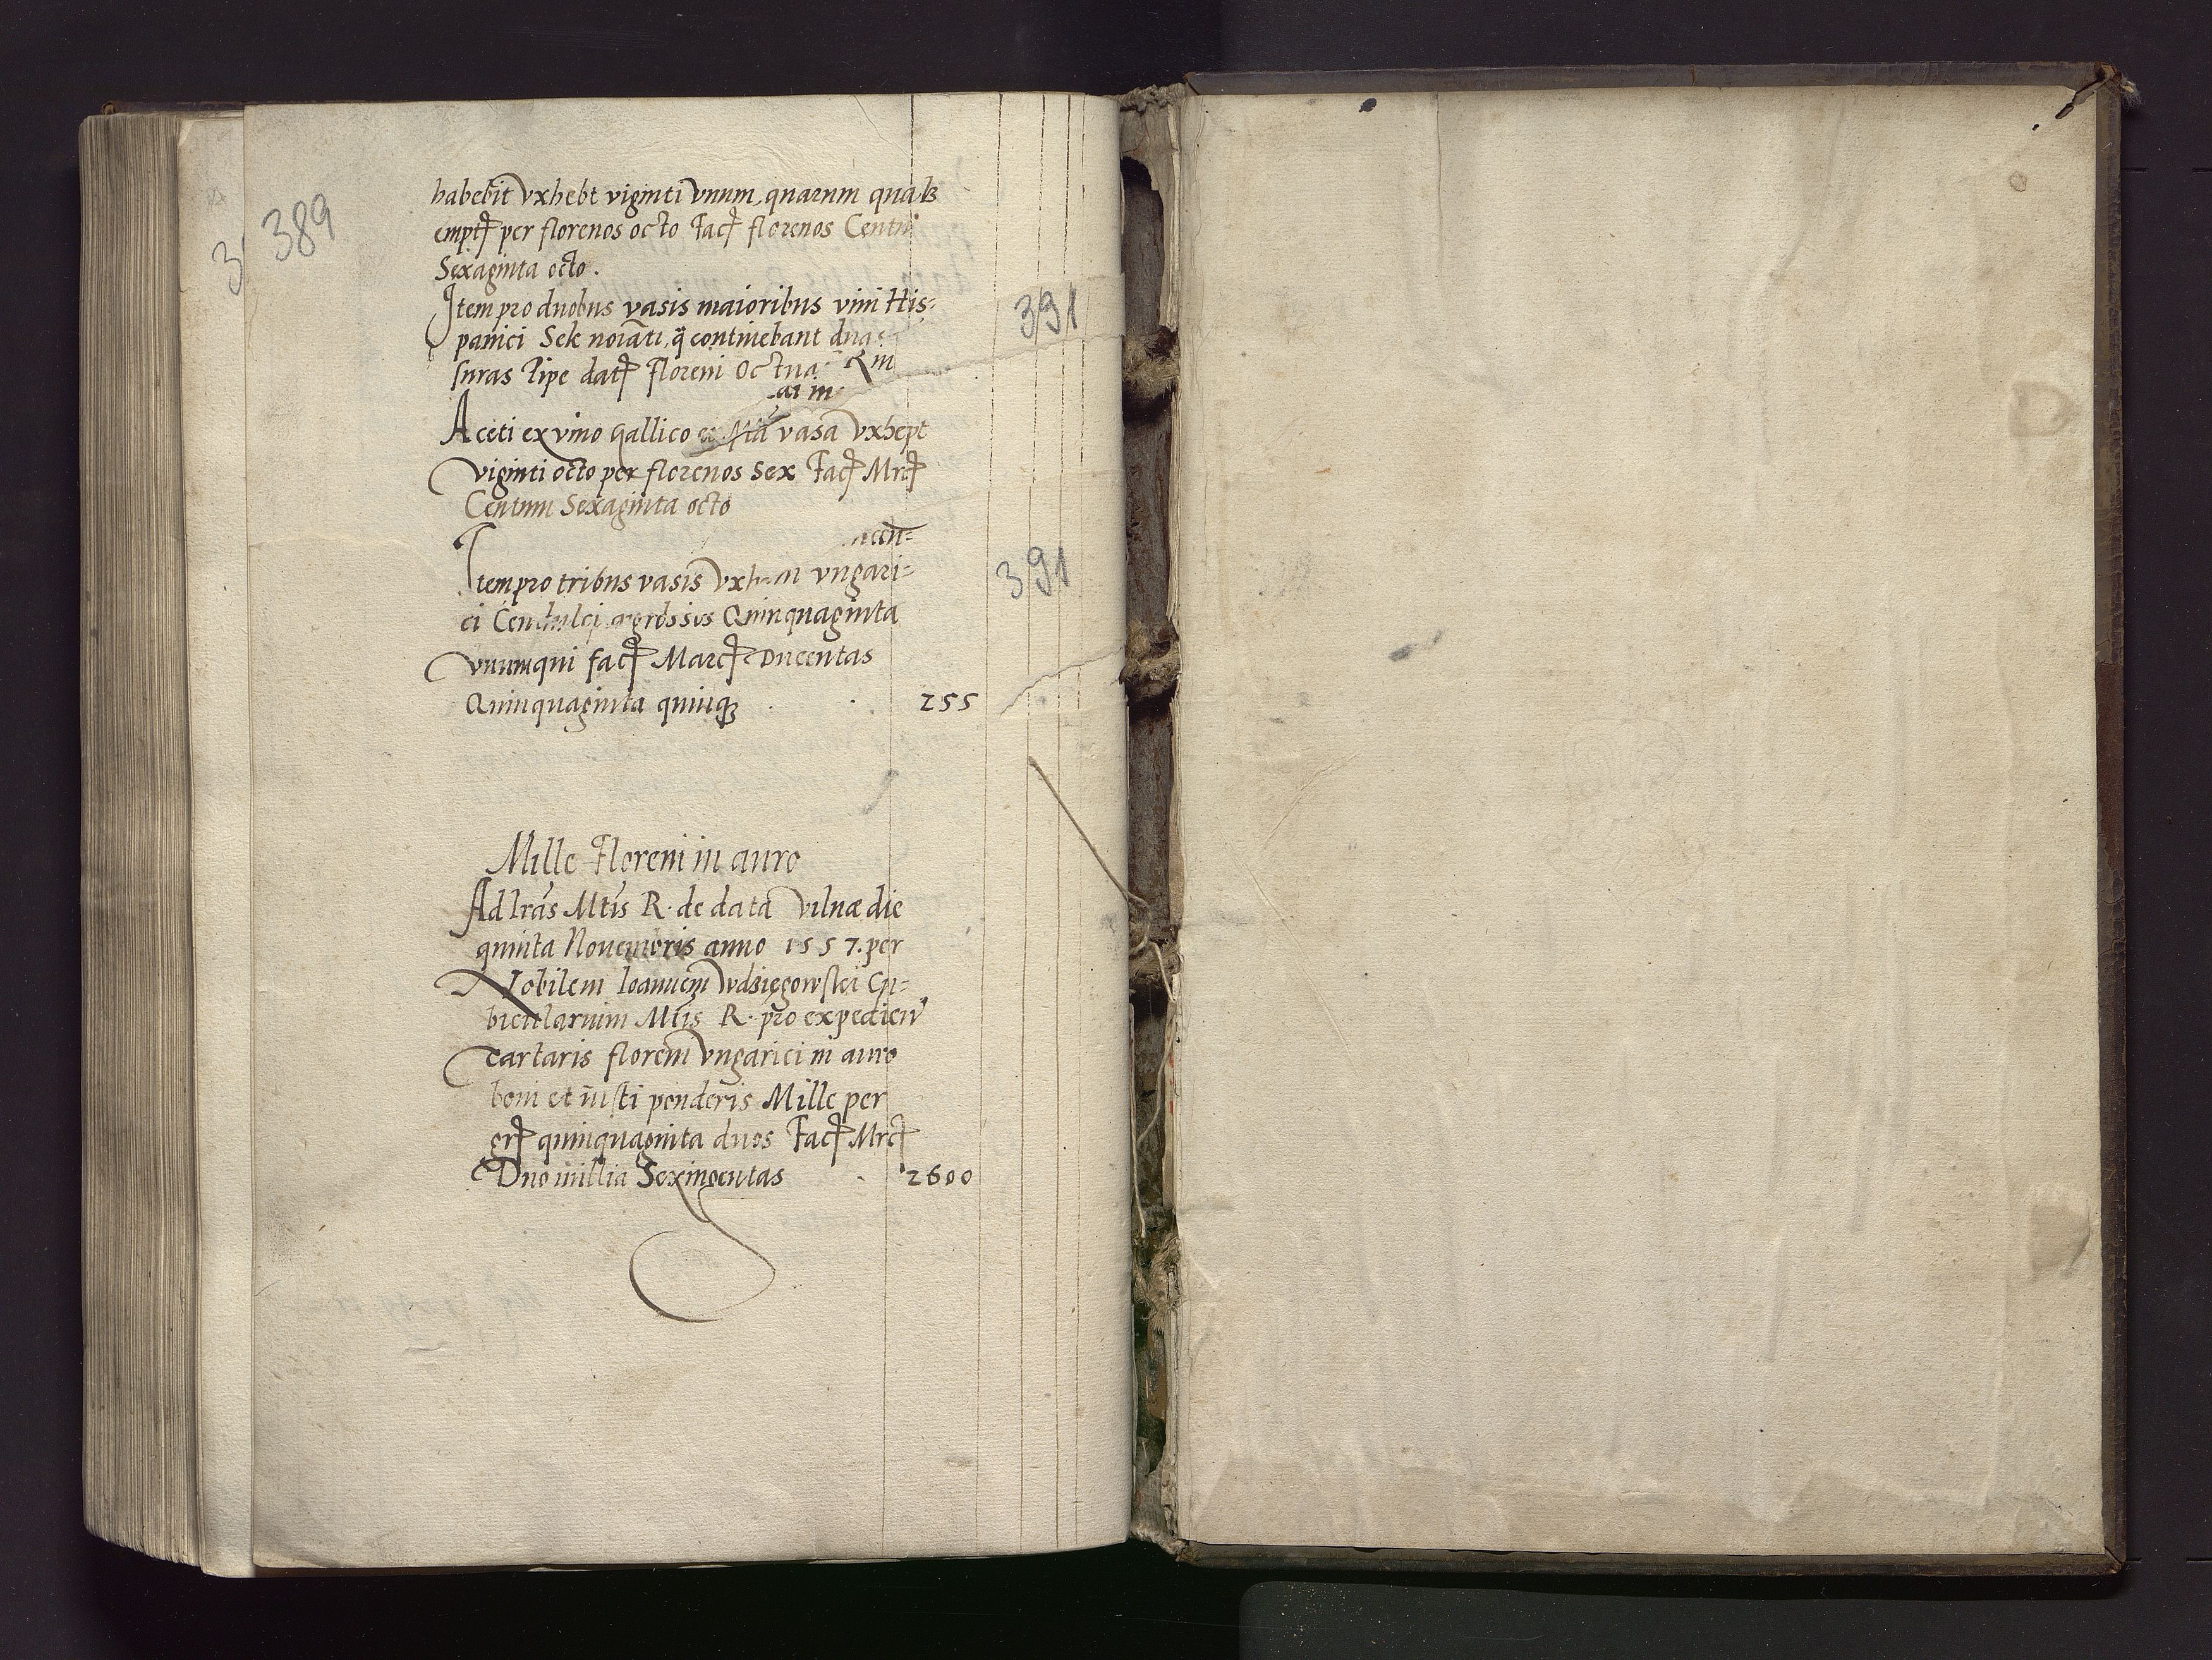 389
habebit Vxhebt viginti Vnum, quarum qualꝫ
empt[ꝭ] per florenos octo Facꝭ florenos Centũ
Sexaginta octo.
Item pro duobus vasis maioribus vini His=
panici Sek noĩati, q̃ continebant duas
suras Pipe datꝭ Floreni Octua
Aceti ex vino gallico vasa Vxhept
viginti octo per florenos Sex Facꝭ Mrcꝭ
Centum Sexaginta octo
Item pro tribus vasis vngari=
ci grossos Quinquaginta
vnum qui facꝭ Marcꝭ Ducentas
Quinquaginta quinqꝫ . . 255
391
391
Mille Floreni in auro
Ad lrãs Mtis R. de data Vilnæ die
quinta Nouembris anno 1557. per
Nobilem Ioannem Wdzięgowski Cu=
bicularium Mtis R. pro expedien
Tartaris floreni Vngarici in auro
boni et iusti ponderis Mille per
grꝭ quinquaginta duos Facꝭ Mrcꝭ
Duo millia Sexingentas . 2600